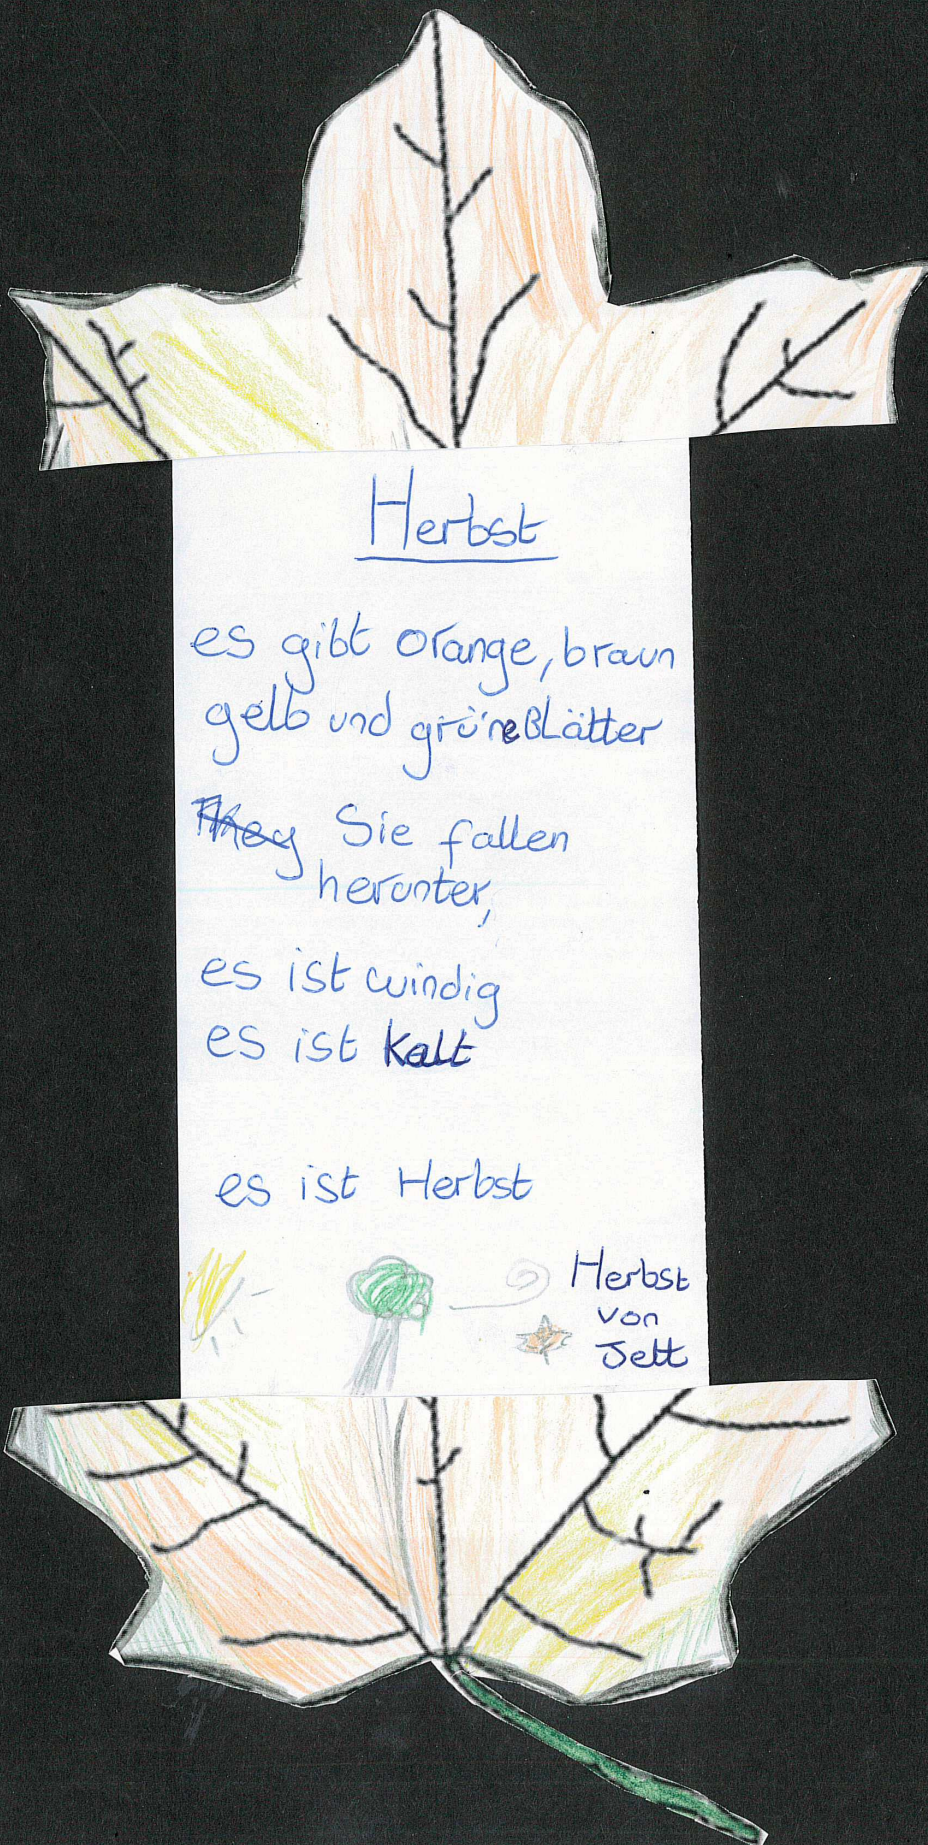 Herbst
es gibt orange, braun
gelb und grüne Blätter
They Sie fallen
herunter,
es ist windig
es ist kalt
es ist Herbst
Herbst
von
Jett